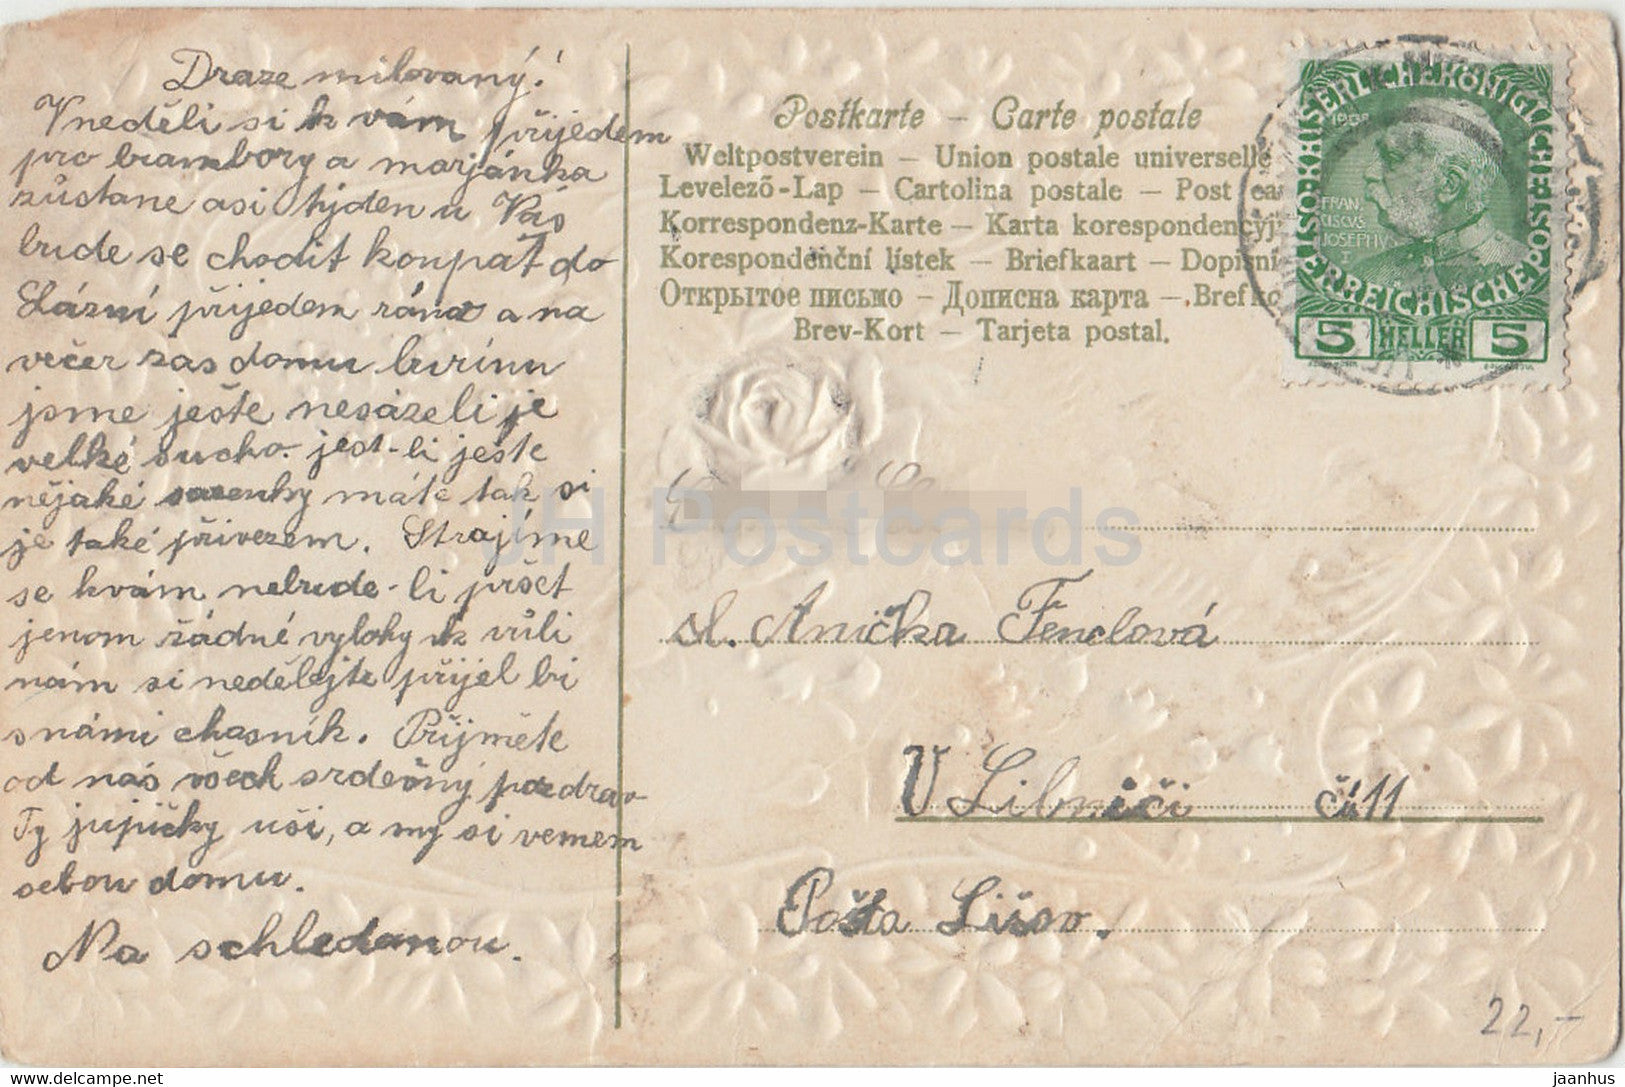 Draze milovaný!
V neděli si k vám přijedem
pro brambory a marjánka
zůstane asi týden u Vás
bude se chodit koupat do
Lázní přijedem ráno a na
večer zas domu burinu
jsme ješte nesázeli je
velké sucho. jest-li ješte
nějaké sazenky máte tak si
je také přivezem. Strojíme
se kvám nebude-li pršet
jenom žádné vylohy k vůli
nám si nedělejte přijel bi
snámi chasník. Přijměte
od nás všech srdečný pozdrav
Ty jujičky uši, a my si vemem
sebou domu.
Na schledanou.
Postkarte – Carte postale
Weltpostverein – Union postale universelle
Levelező-Lap – Cartolina postale – Post ca
Korrespondenz-Karte – Karta korespondencyj
Korespondenční lístek – Briefkaart – Dopisni
Открытое письмо – Дописна карта – Brefko
Brev-Kort – Tarjeta postal.
KAISERLICHE KÖNIGLICHE ÖSTERREICHISCHE POST
1908
FRAN
CISCVS
JOSEPHVS
I
5 HELLER 5
JH Postcards
sl. Anička Fenclová
V Libniči či 11
Pošta Lišov.
22,-
jaanhus